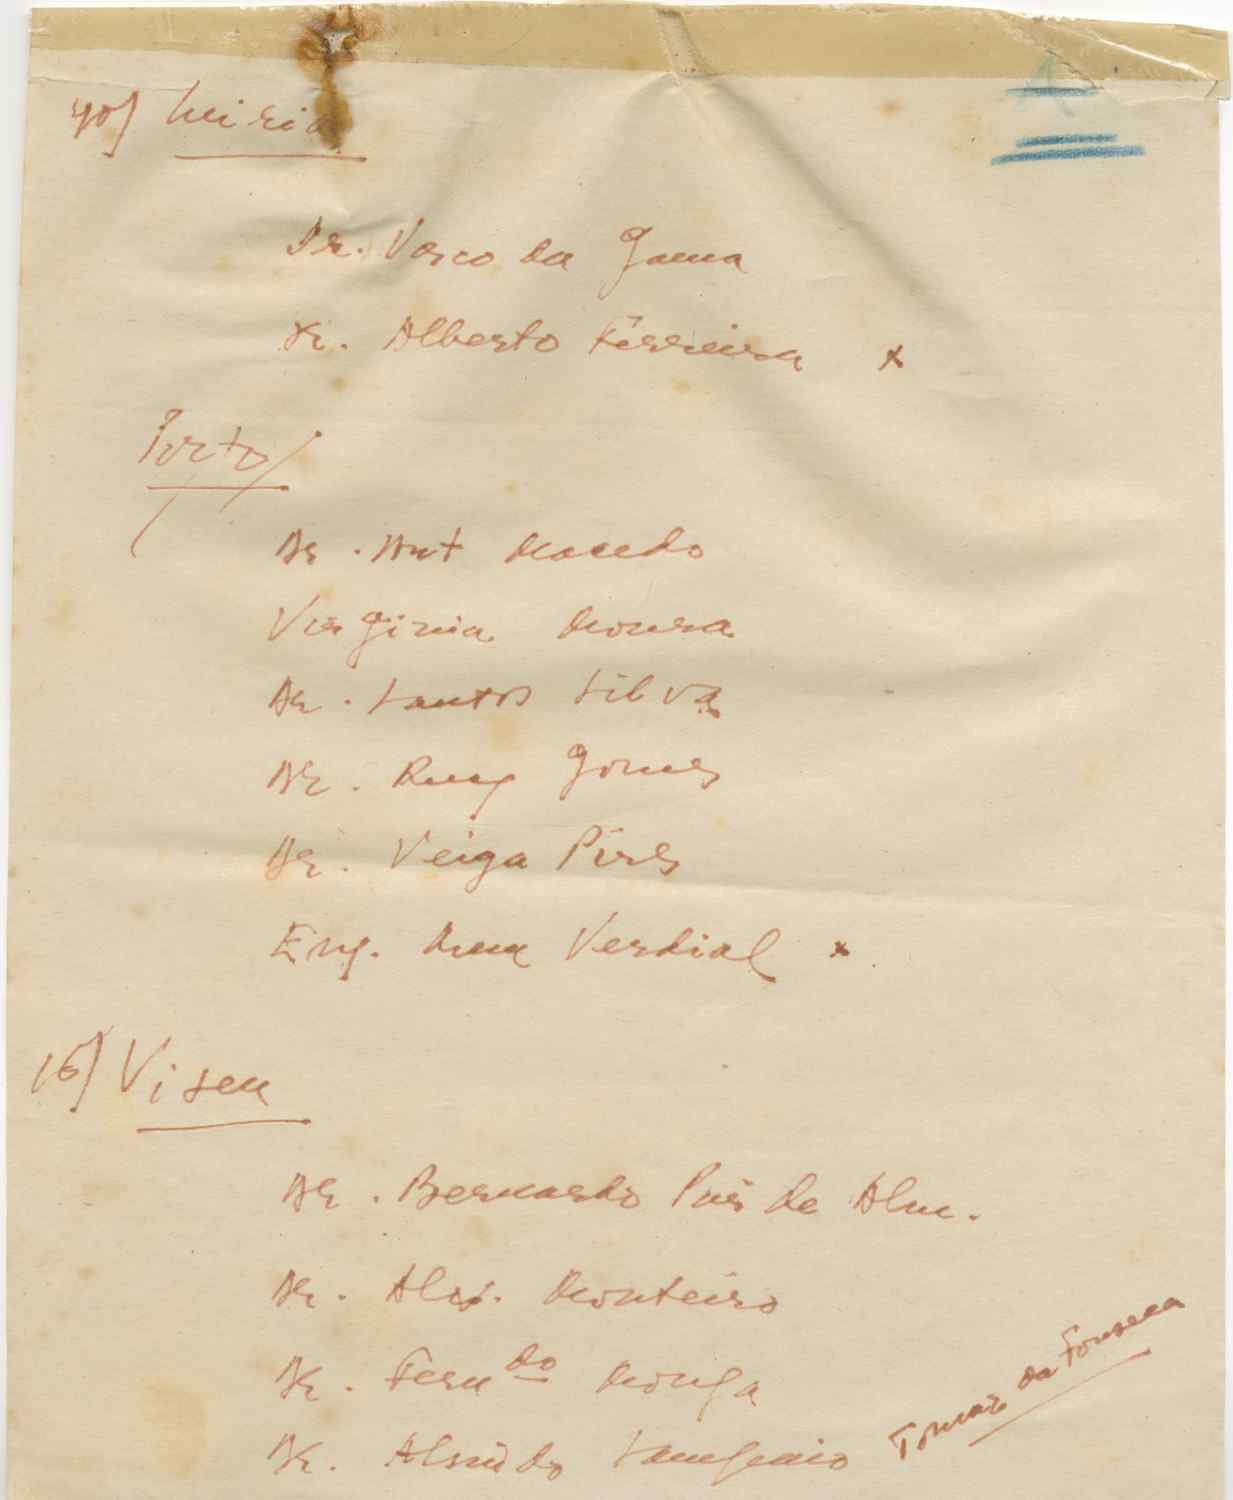 40) Leiria
Dr. Vasco da Gama
Dr. Alberto Ferreira x
Porto
Dr. Ant Macedo
Virginia Moura
Dr. Santos Silva
Dr. Ruy Gomes
Dr. Veiga Pires
Eng. Verdial x
16) Viseu
Dr. Bernardo Pais de Alm.
Dr. Alv. Monteiro
Dr. Fern do
Dr. Alfredo
Tomaz da Fonseca